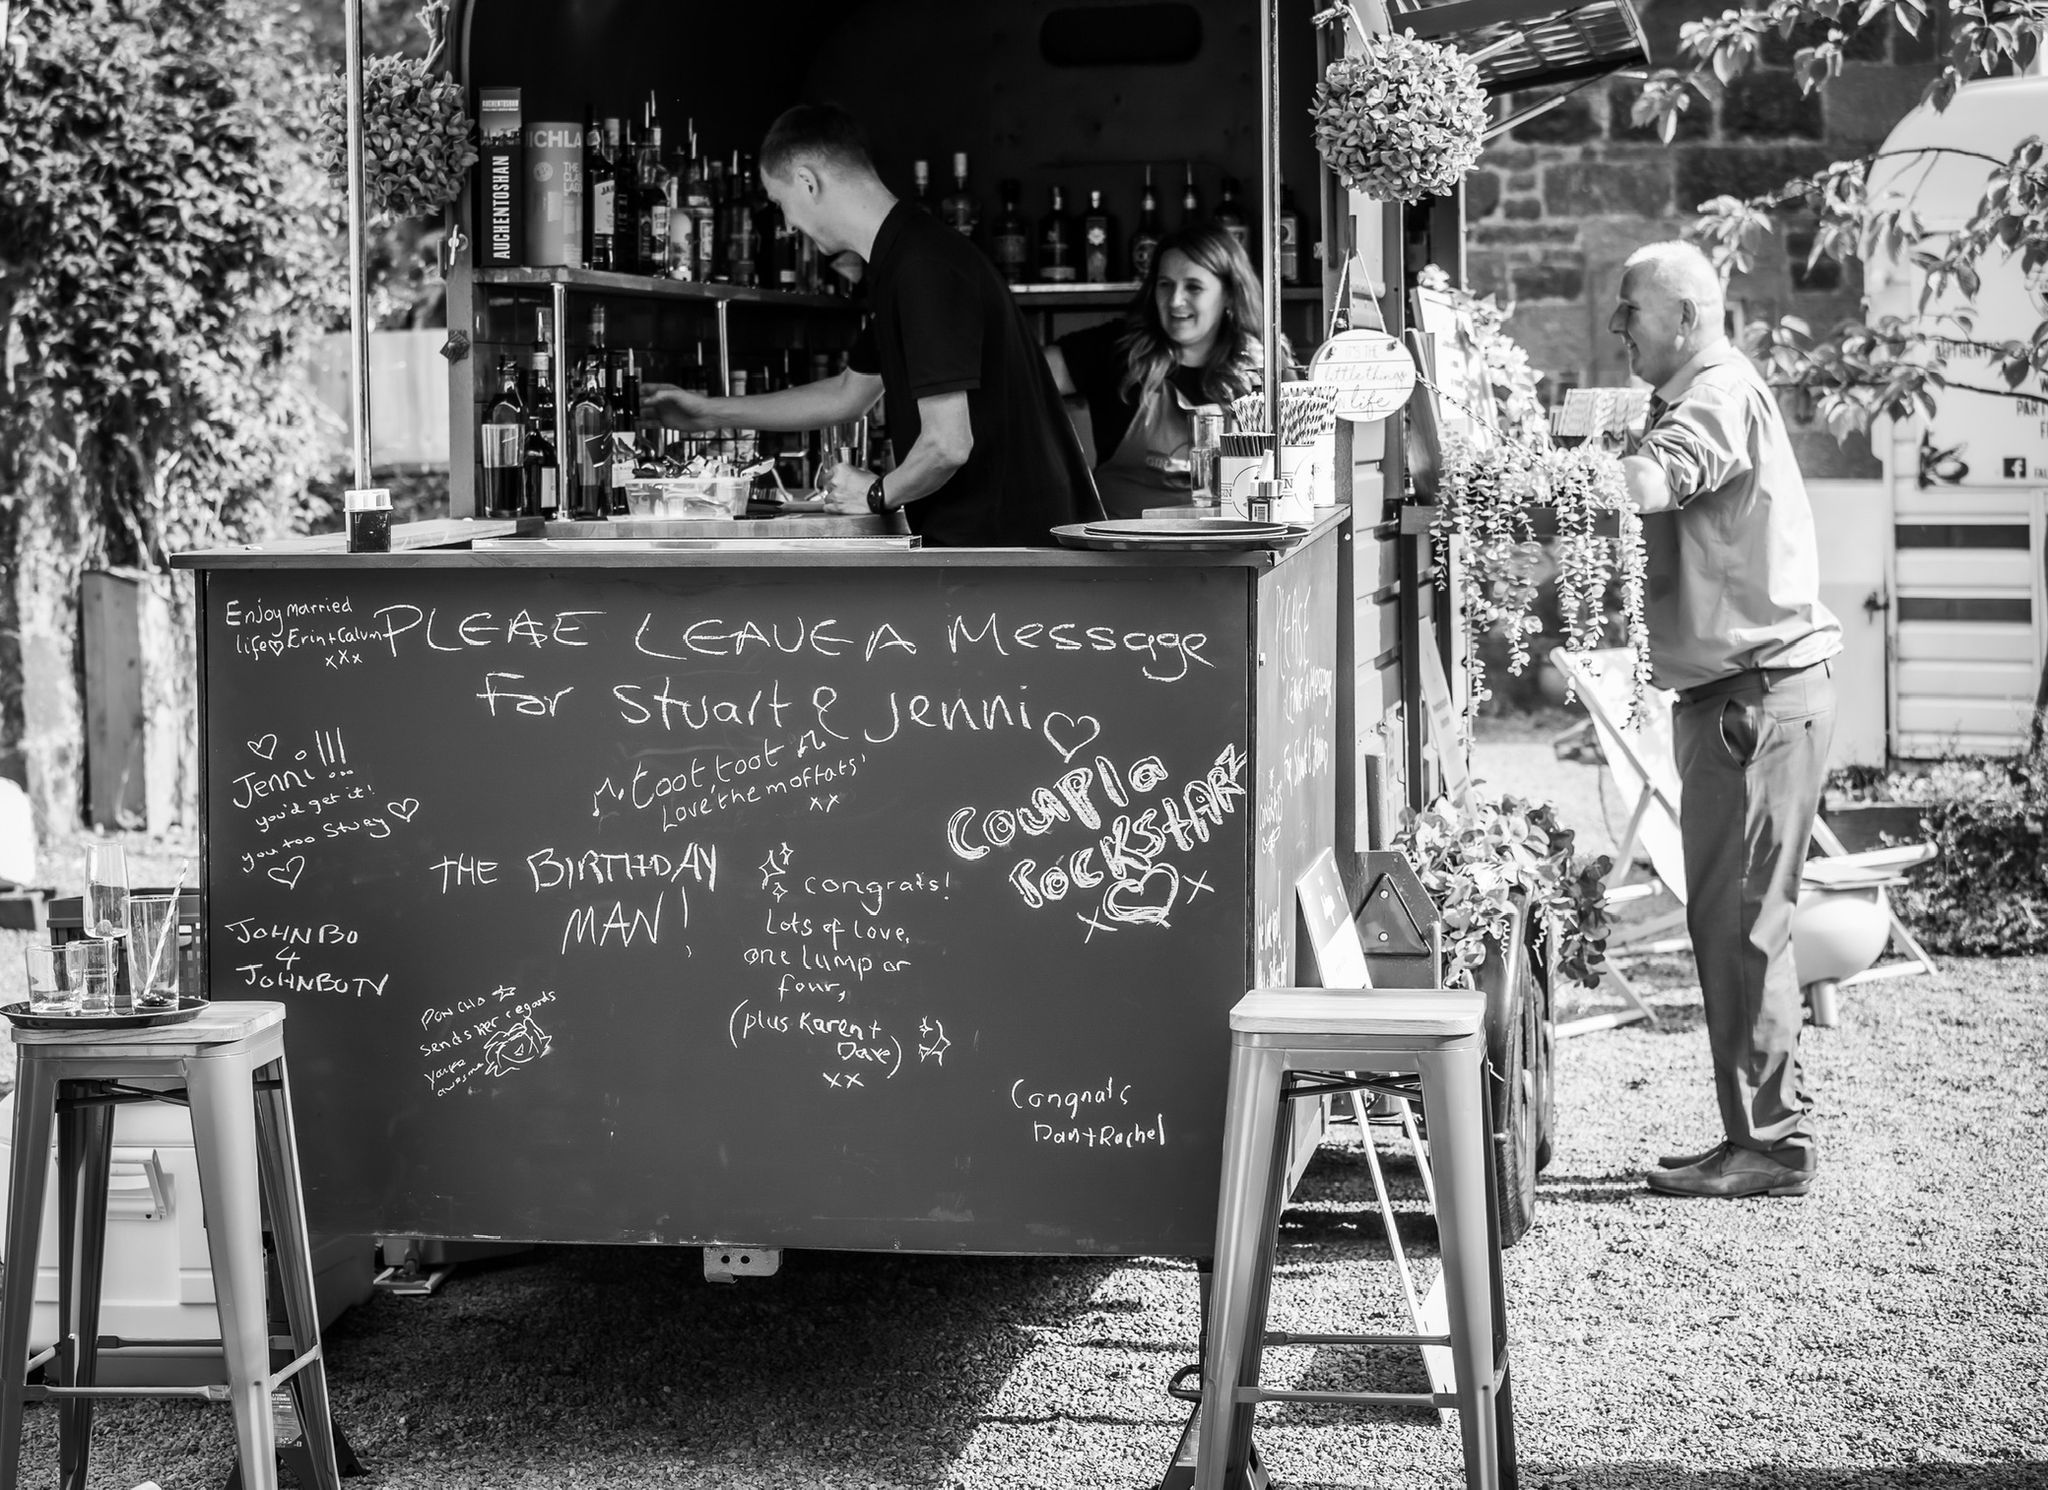 AUCHENTOSHAN
AUCHENTOSHAN
ICHLA
THE
IT'S THE
little things
life
AUTHENTIC
PART
Enjoy married
life♡ Erin + Calum
xXx
PLEASE LEAVE A Message
For Stuart & Jenni ♡
♡ . !!!
Jenni ...
you'd get it!
you too Stuey ♡
♡
toot, toot
Love, the moffats'
xx
COUPla
ROCKStARZ
X ♡ X
THE BIRTHDAY
MAN!
congrats!
Lots of love,
one lump or
four,
(plus Karen +
Dave)
xx
JOHNBO
4
JOHNBOTV
PONCHO
sends her regards
awesome
Congrats
Dan + Rachel
PLEASE
LEAVE A Message
For Stuart